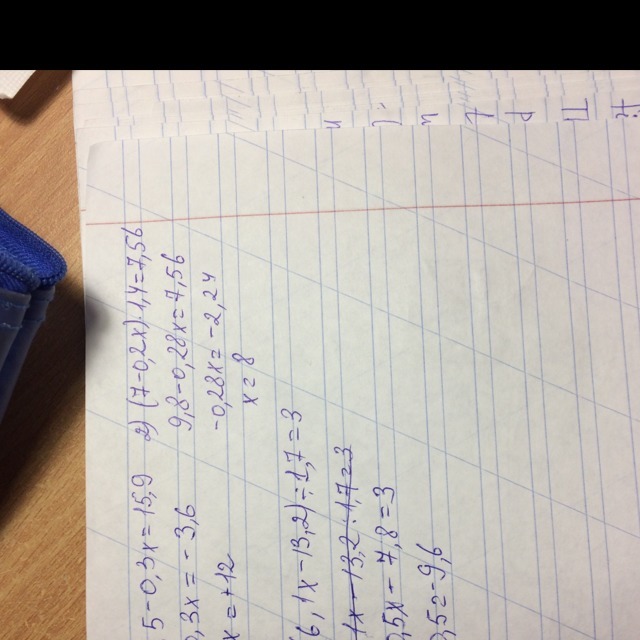 5-0,3x=15,9 2) (7-0,2x)·1,4=7,56
0,3x=-3,6 9,8-0,28x=7,56
x=+12 -0,28x=-2,24
x=8
6,1x-13,2):1,7=3
1x-13,2:1,7=3
,5x-7,8=3
,5=-9,6